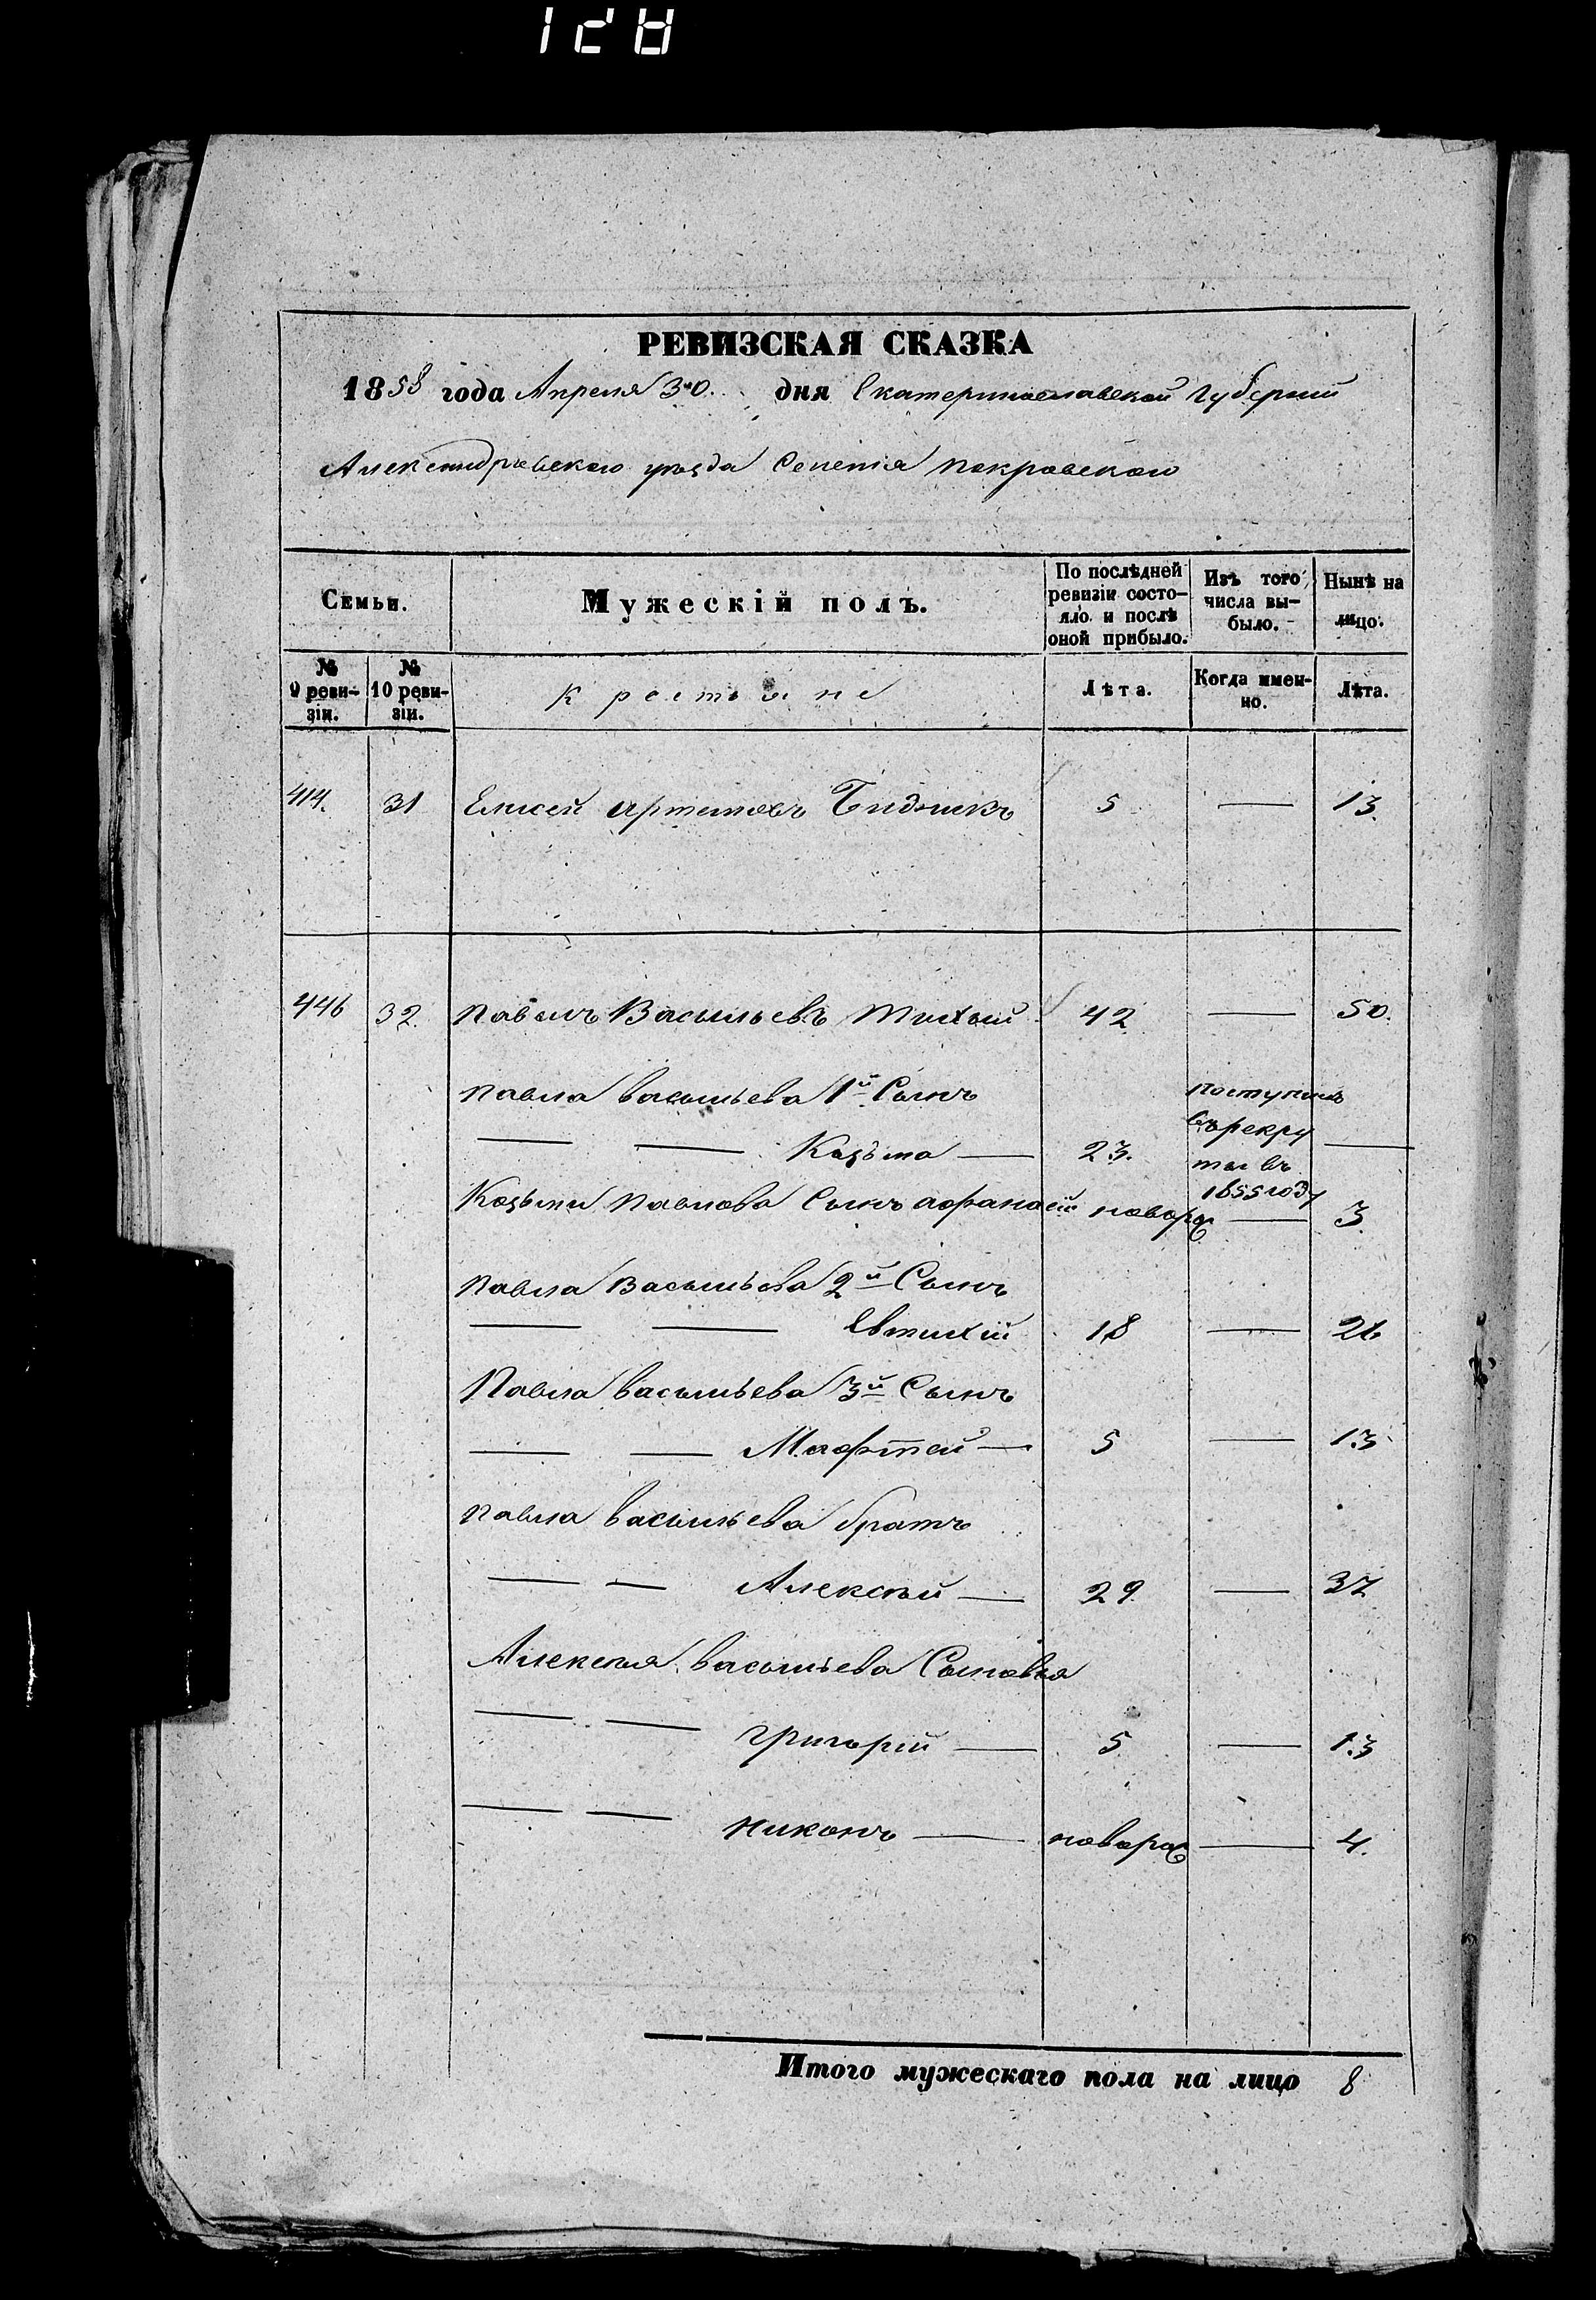 128
РЕВИЗСКАЯ СКАЗКА
1858 года Апреля 30 дня Екатеринославской Губернии
Александровского уезда Селения покровского
Семьи.
Мужескій полъ.
По послѣдней ревизіи состояло и послѣ оной прибыло.
Изъ того числа выбыло.
Нынѣ на лицо.
№ 9 ревизіи.
№ 10 ревизіи.
крестьяне
Лѣта.
Когда именно.
Лѣта.
414. 31 Елисей Артемовъ 5 — 13.
446 32. Павелъ Васильевъ Тихий 42 — 50.
Павла васильева 1й Сынъ
— — Козьма — 23. поступилъ въ рекруты въ 1855 году —
Козьмы Павлова Сынъ афанасій новорож — 3.
Павла Васильева 2й Сынъ
— — Евтихій 18 — 26
Павла васильева 3й Сынъ
— — Мафтей — 5 — 13
Павла васильева братъ
— — Алексѣй — 29 — 37
Алексѣя васильева Сыновья
— — григорій — 5 — 13
— — никонъ — новорож — 4.
Итого мужескаго пола на лицо 8